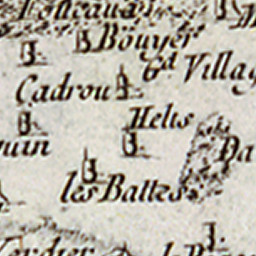 Bouyer
Gd Villag
Cadrou
Helis
uin
Da
les Battes
Verdier